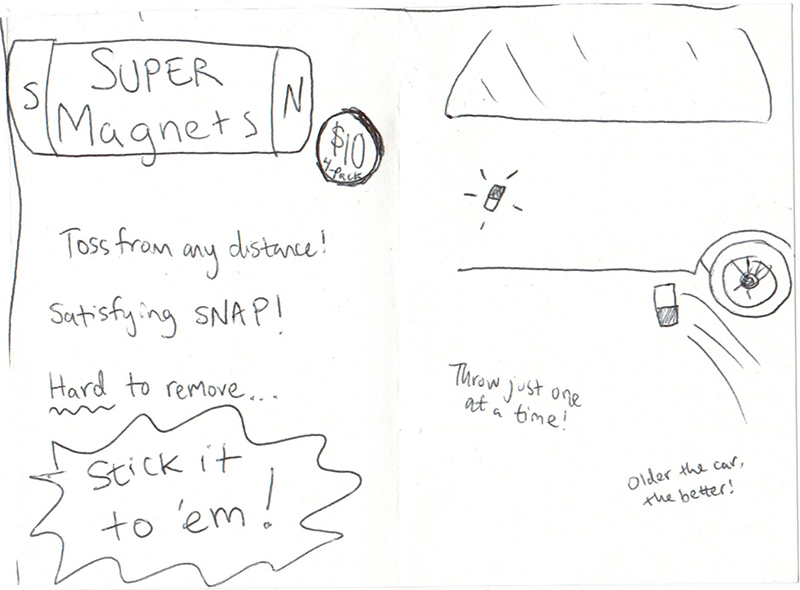 S
SUPER
Magnets
N
$10
4-Pack
Toss from any distance!
Satisfying SNAP!
Hard to remove...
Stick it
to 'em!
Throw just one
at a time!
Older the car,
the better!